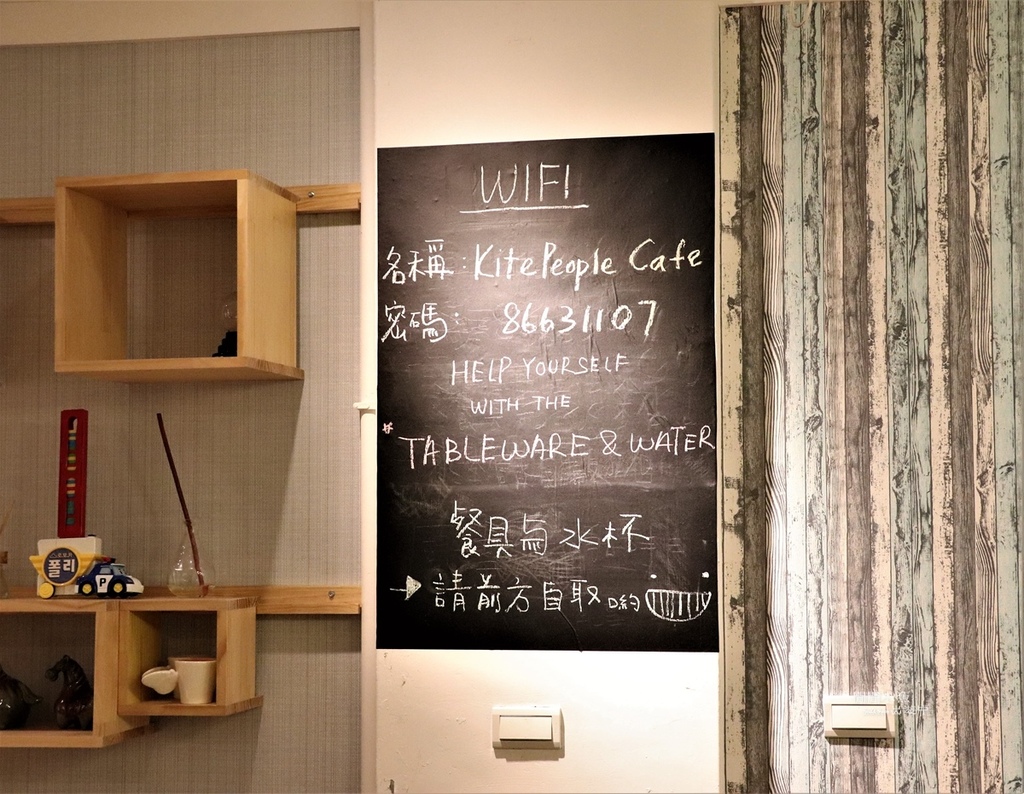 WIFI
名稱:KitePeople Cafe
密碼: 86631107
HELP YOURSELF
WITH THE
TABLEWARE & WATER
餐具与水杯
→請前方自取喲
폴리
P